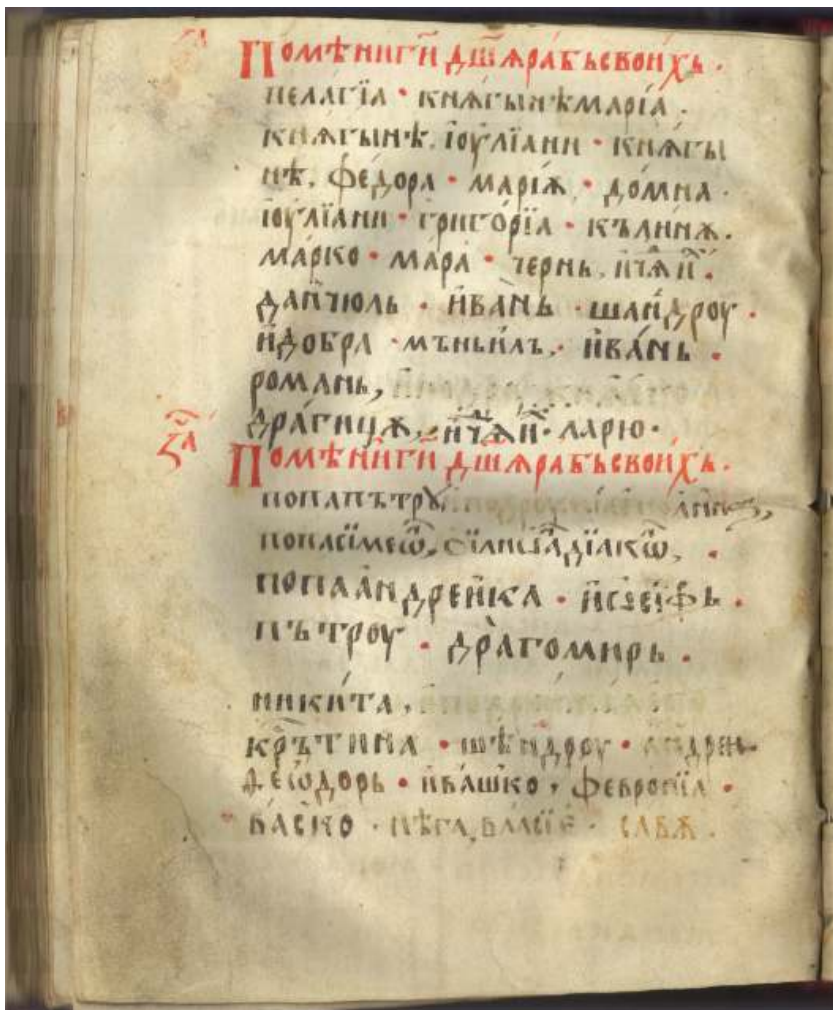 Помѣни ги́ дш҃ѧ рабь свои́хь ·
пелагїа · кнѧгынѣ марїа ·
кнѧгынѣ. іѹлїани · кнѧгы
нѣ. фе́дора · марїѫ · до́мна ·
іѹлїани · григо́рїа · кълинѫ.
ма́рко · ма́ра · чернь.
данчюль · и҆ва́нь · шан́дроу ·
и҆ добра · мъньилъ, и҆ва́нь ·
романь,
дра́гицѫ, ларю ·
Помѣни ги́ дш҃ѧ рабь свои́хь.
попа пътрѹ
попа сімеѡ҅, дїакѡ҅,
попа а҆ндреи҆ка · и҆ѡсїфь ·
пътроу · дра́гомирь ·
ники́та,
кръ́тина · шѣндроу · андреи
феѡдорь · и҆ва́шко · февронїа ·
ва́ско · нѣга, власїе · савѫ.